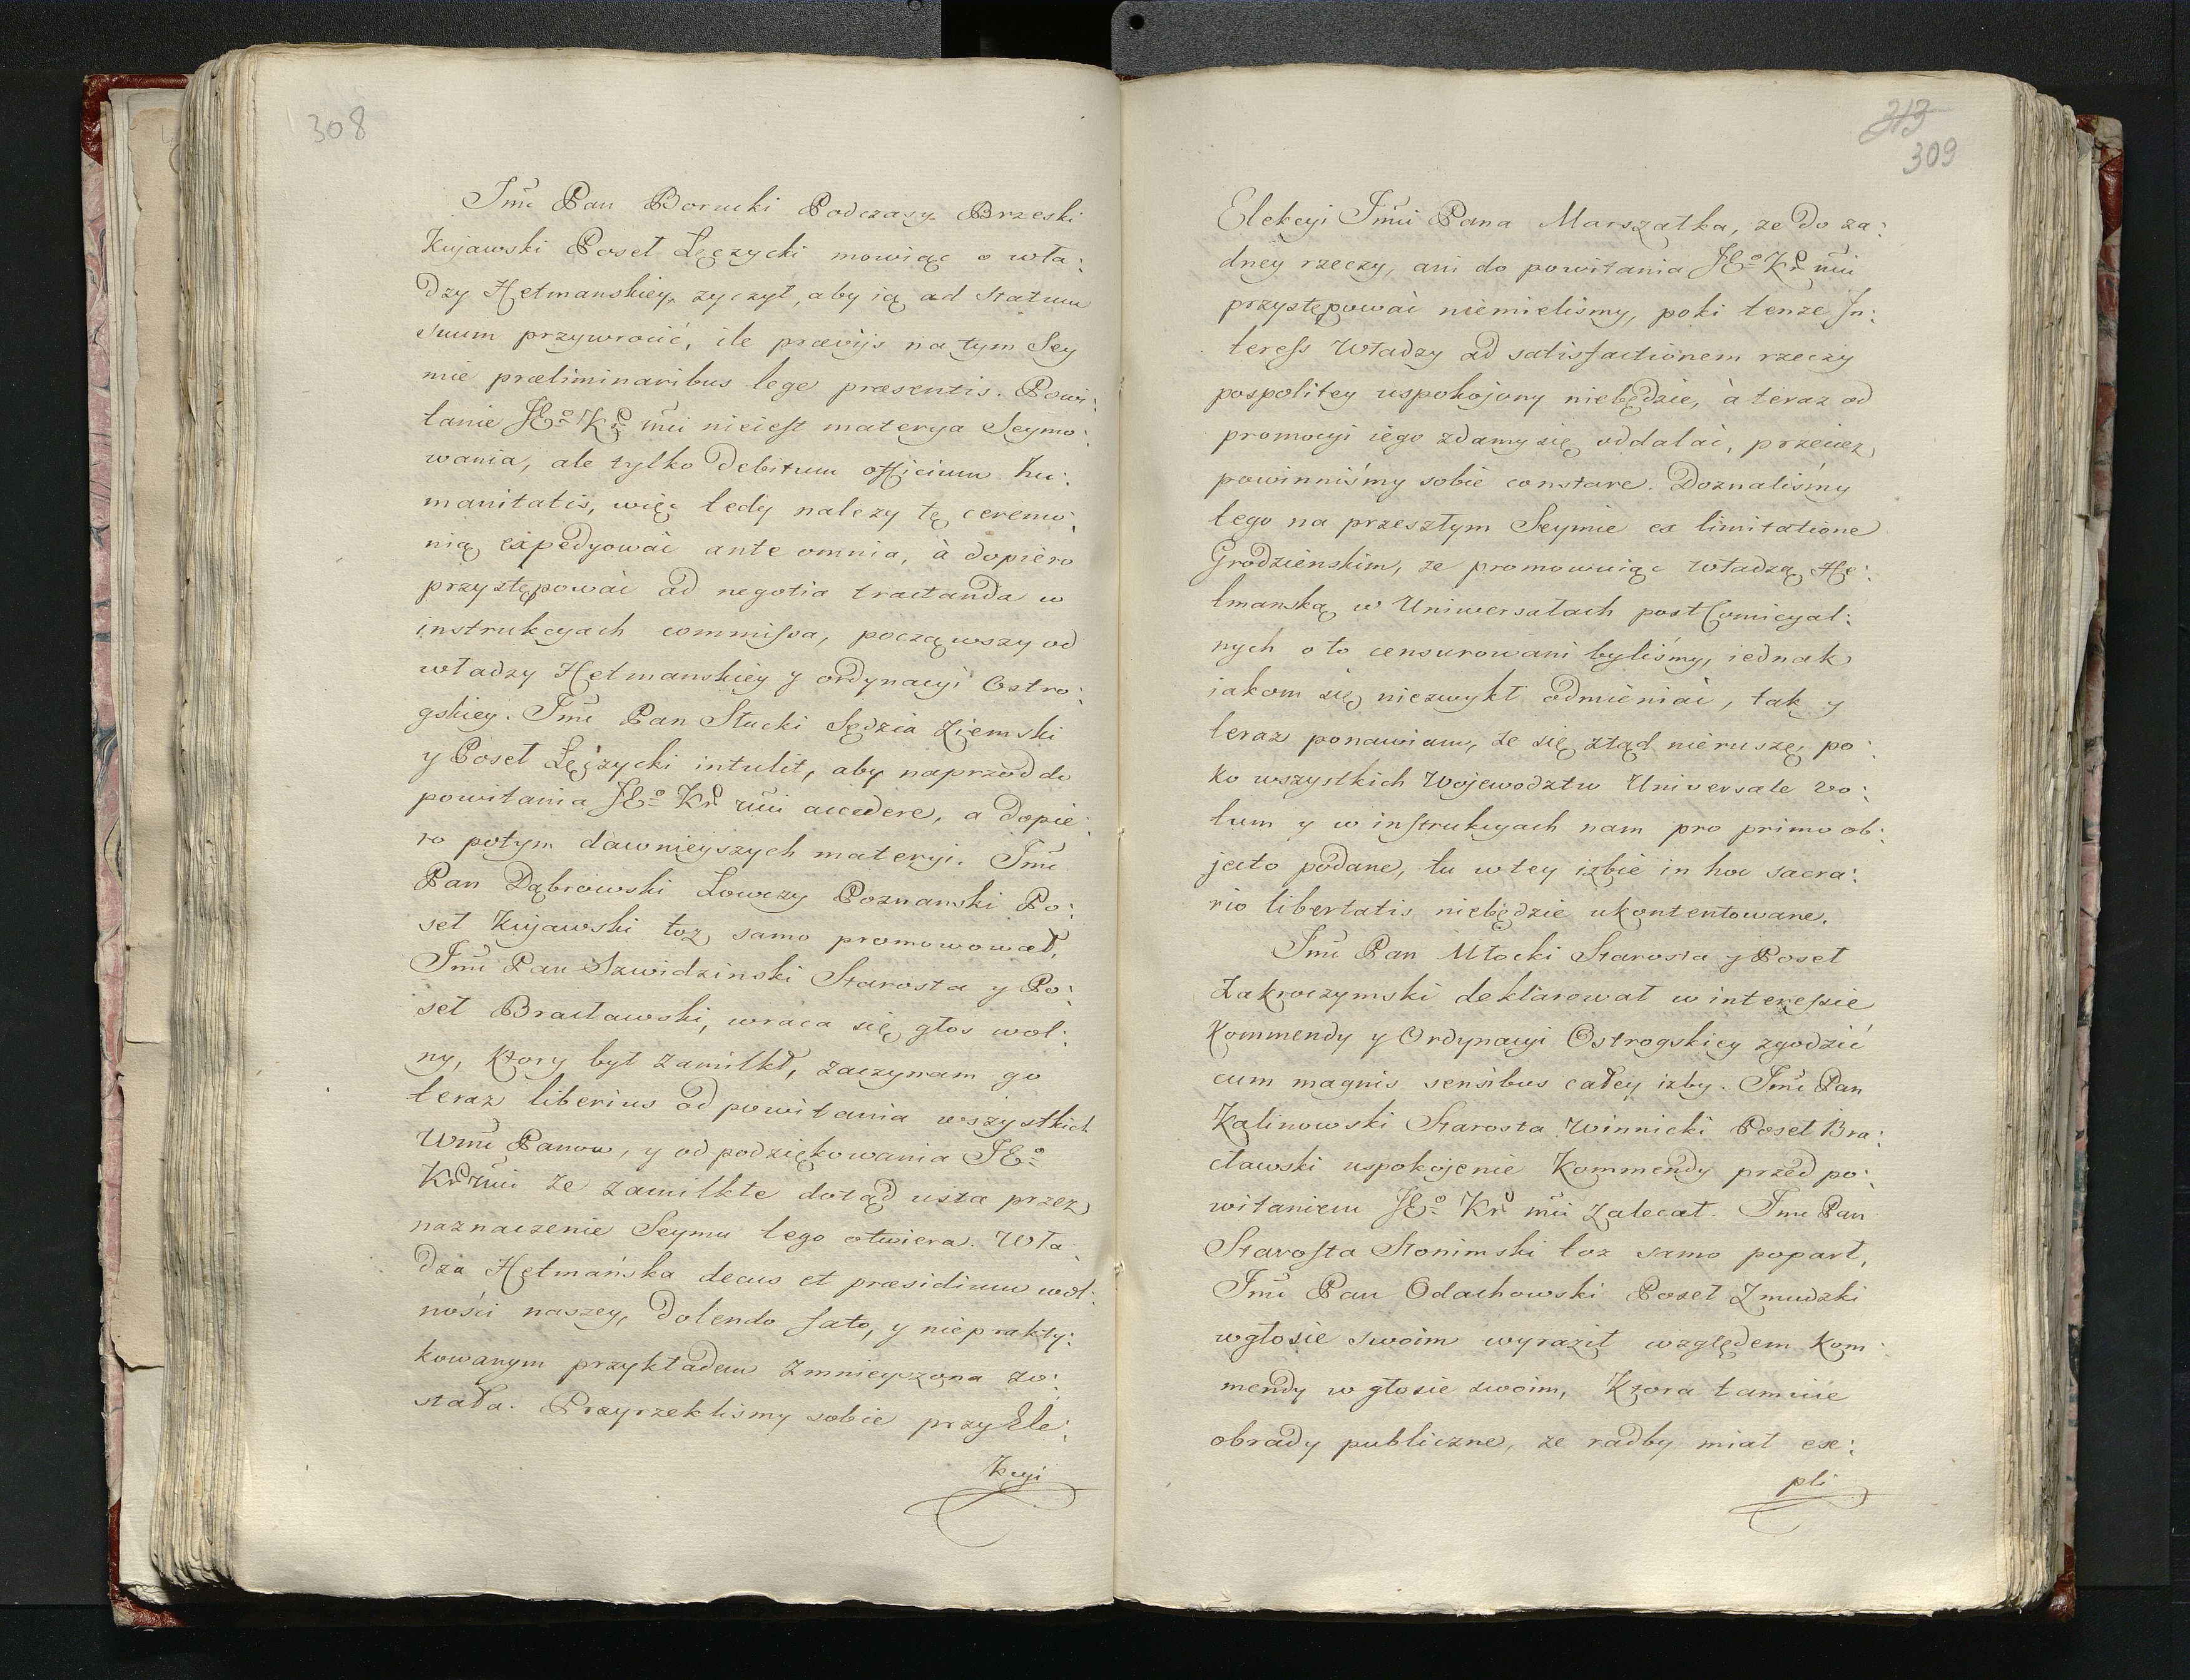 308
Jmć Pan Borucki Podczasy Brzeski
Kujawski Poseł Łęczycki mowiąc o wła:
dzy Hetmanskiey, zyczył, aby ią ad statum
suum przywroić, ile prævijs na tym Sey
mie præliminaribus lege præsentis. Powi:
tanie JEº Kr mći nieiest materya Seymo:
wania, ale tylko debitum officium hu:
manitatis, więc tedy nalezy tę ceremo:
nią expedyować ante omnia, à dopiero
przystępować ad negotia tractanda w
instrukcyach commissa, począwszy od
władzy Hetmanskiey y ordynacyi Ostro:
gskiey. Jmć Pan Słucki Sędzia Ziemski
y Poseł Łęczycki intulit, aby naprzod do
powitania JEº Kr mći accedere, a dopie:
ro potym dawnieyszych materyi. Jmć
Pan Dąbrowski Łowczy Poznanski Po:
seł Kujawski toz samo promowował,
Jmć Pan Szwidzinski Starosta y Po:
seł Bracławski, wraca się głos wol:
ny, ktory był zamilkł, zaczynam go
teraz liberius od powitania wszystkich
Wmć Panow, y od podziękowania JEº
Kr mći ze zamilkłe dotąd usta przez
naznaczenie Seymu tego otwiera. Wła
dza Hetmańska decus et præsidium wol:
ności naszey, dolendo fato, y nieprakty:
kowanym przykładem zmnieyszona zo:
stała. Przyrzeklismy sobie przy Ele:
kcyi
313
309
Elekcyi Jmći Pana Marszałka, ze do za:
dney rzeczy, ani do powitania JEº Kr mći
przystępować niemielismy, poki tenze In:
teress Władzy ad satisfactionem rzeczy
pospolitey uspokojony niebędzie, à teraz od
promocyi iego zdamy się oddalać, przeciez
powinniśmy sobie constare. Doznaliśmy
tego na przeszłym Seymie ex limitatione
Grodzienskim, ze promowuiąc władzą He:
tmanską w Uniwersałach post Comicyal:
nych o to censurowani byliśmy, iednak
iakom się niezwykł odmieniać, tak y
teraz ponawiam, ze się ztąd nieruszę, po:
ko wszystkich Wojewodztw Universale vo:
tum y w instrukcyach nam pro primo ob:
jecto podane, tu w tey izbie in hoc sacra:
rio libertatis niebędzie ukontentowane.
Jmć Pan Młocki Starosta y Poseł
Zakroczymski deklarował w interessie
Kommendy y Ordynacyi Ostrogskiey zgodzić
cum magnis sensibus całey izby. Jmć Pan
Kalinowski Starosta Winnicki Poseł Bra:
cławski uspokojenie Kommendy przed po:
witaniem JEº Kr mći zalecał. Jmć Pan
Starosta Słonimski toz samo poparł,
Jmć Pan Odachowski Poseł Zmudzki
w głosie swoim wyraził względem Kom:
mendy w głosie swoim, Ktora tamuie
obrady publiczne, ze radby miał exe:
pli